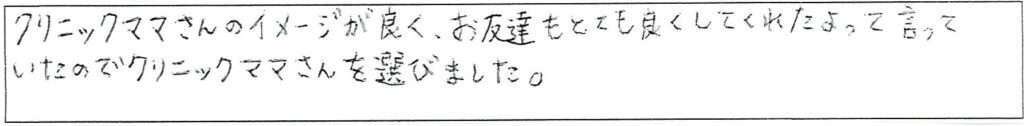 クリニックママさんのイメージが良く、お友達もとても良くしてくれたよって言って
いたのでクリニックママさんを選びました。